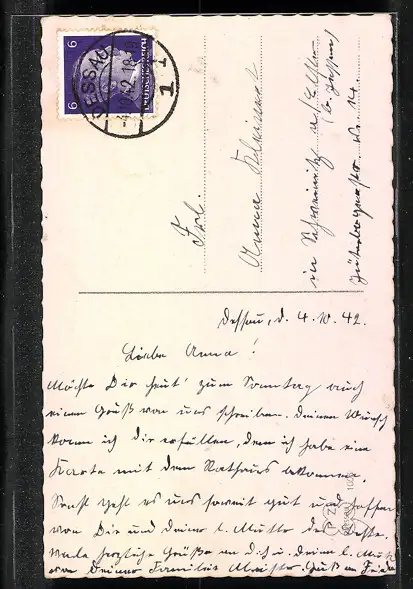 6 6
DEUTSCHES REICH
DESSAU 1
-4.10.42.18
1
Frl.
Anna
in Schweinitz a/Elster
(b. Jessen)
Jüterbogerstr. № 14.
Dessau, d. 4.10.42.
Liebe Anna!
Möchte Dir heut' zum Sonntag auch
einen Gruß von uns schreiben. Deinen Wunsch
kann ich dir erfüllen, denn ich habe eine
Karte mit dem Rathaus bekommen.
Sonst geht es uns soweit gut und hoffen
von Dir und deiner l. Mutter das Beste.
Viele herzliche Grüße an Dich u. Deine l. Mutt
von Deiner Familie Gruß an Frieda